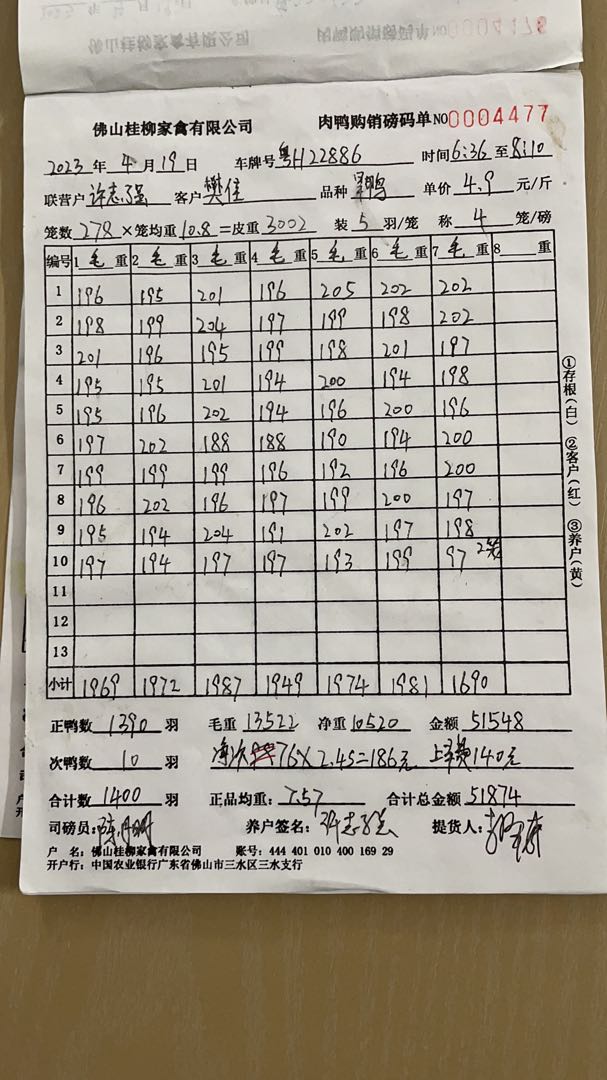 佛山桂柳家禽有限公司 肉鸭购销磅码单 NO 0004477
2023 年 4 月 19 日 车牌号 粤H22886 时间 6:36 至 8:10
联营户 许志强 客户 樊佳 品种 鸭 单价 4.9 元/斤
笼数 278 ×笼均重 10.8 =皮重 3002 装 5 羽/笼 称 4 笼/磅
编号 1 毛 重 2 毛 重 3 毛 重 4 毛 重 5 毛 重 6 毛 重 7 毛 重 8 重
1 196 195 201 196 205 202 202
2 198 199 204 197 199 198 202
3 201 196 195 199 198 201 197
4 195 195 201 194 200 194 198
5 195 196 202 194 196 200 196
6 197 202 188 188 190 194 200
7 199 199 199 196 192 196 200
8 196 202 196 197 199 200 197
9 195 194 204 191 202 197 198
10 197 194 197 197 193 199 97 2笼
11
12
13
小计 1969 1972 1987 1949 1974 1981 1690
①存根(白) ②客户(红) ③养户(黄)
正鸭数 1390 羽 毛重 13522 净重 10520 金额 51548
次鸭数 10 羽 净次 76×2.45=186元 上车费140元
合计数 1400 羽 正品均重: 7.57 合计总金额 51874
司磅员: 养户签名: 许志强 提货人:
户 名: 佛山桂柳家禽有限公司 账号: 444 401 010 400 169 29
开户行: 中国农业银行广东省佛山市三水区三水支行